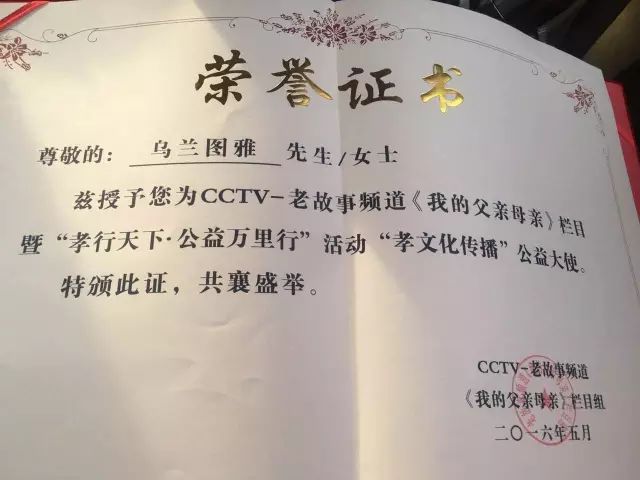 荣誉证书
尊敬的: 乌兰图雅 先生/女士
兹授予您为CCTV-老故事频道《我的父亲母亲》栏目
暨“孝行天下·公益万里行”活动“孝文化传播”公益大使。
特颁此证，共襄盛举。
CCTV-老故事频道
《我的父亲母亲》栏目组
二〇一六年五月